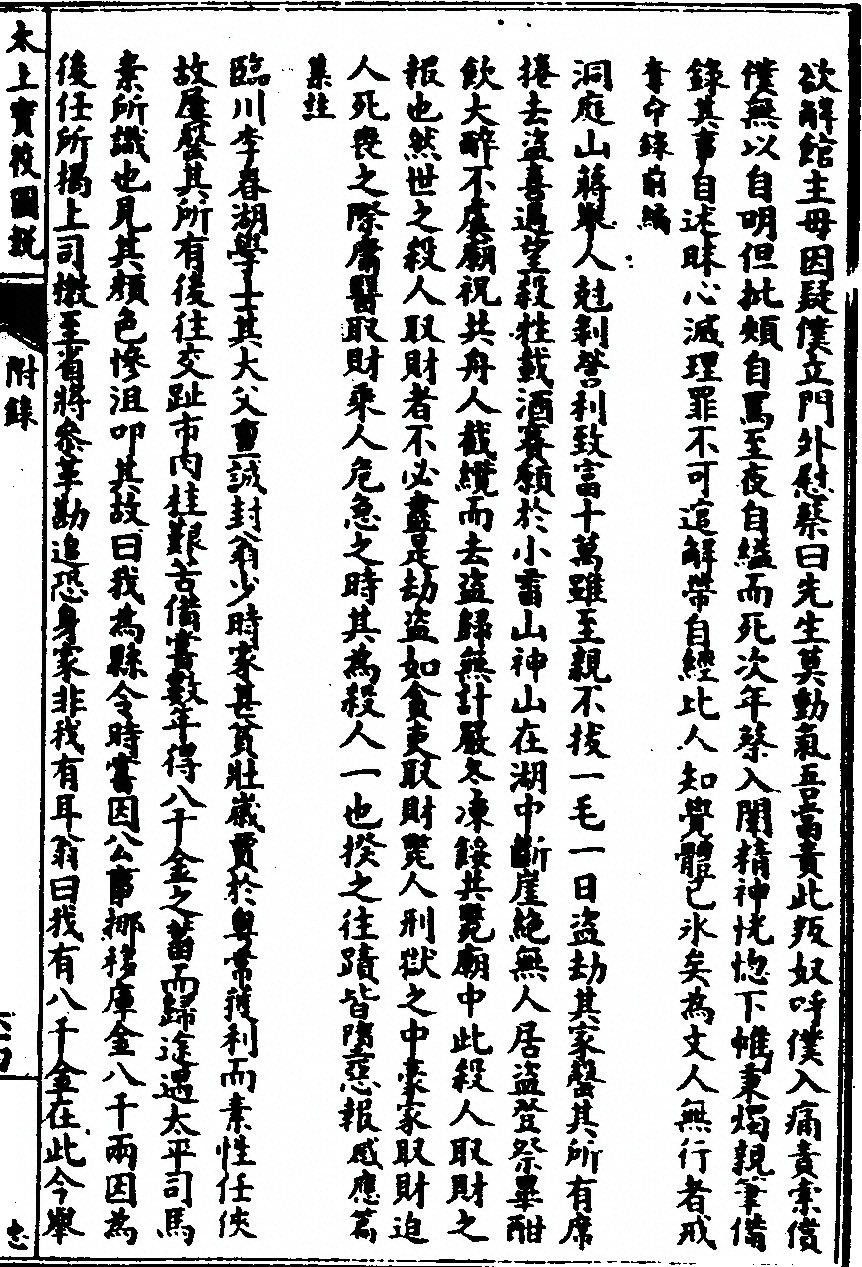 欲解館主毋因疑僕立門外慰蔡曰先生莫動氣吾當責此叛奴呼僕入痛責索償
僕無以自明但批頰自罵至夜自縊而死次年蔡入闈精神恍惚下帷秉燭親筆備
錄其事自述昧心滅理罪不可逭解帶自經比人知覺體已氷矣為文人無行者戒
奪命錄前編
洞庭山蔣舉人尅剝營利致富十萬雖至親不拔一毛一日盜劫其家罄其所有席
捲去盜喜過望殺牲載酒賽願於小雷山神山在湖中斷崖絶無人居盜登祭畢酣
飲大醉不虞廟祝共舟人截纜而去盜歸無計嚴冬凍餒共斃廟中此殺人取財之
報也然世之殺人取財者不必盡是劫盜如貪吏取財斃人刑獄之中豪家取財迫
人死喪之際庸醫取財乘人危急之時其為殺人一也揆之往蹟皆墮惡報感應篇
集註
臨川李春湖學士其大父重誠封翁少時家甚貧壯歲賈於粵常獲利而素性任俠
故屢罄其所有後往交趾市肉桂艱苦備嘗數年得八千金之蓄而歸途遇太平司馬
素所識也見其顏色慘沮叩其故曰我為縣令時嘗因公事挪移庫金八千兩因為
後任所揭上司檄至省將叅革勘追恐身家非我有耳翁曰我有八千金在此今舉
太上寶筏圖說
附錄
六四
忠